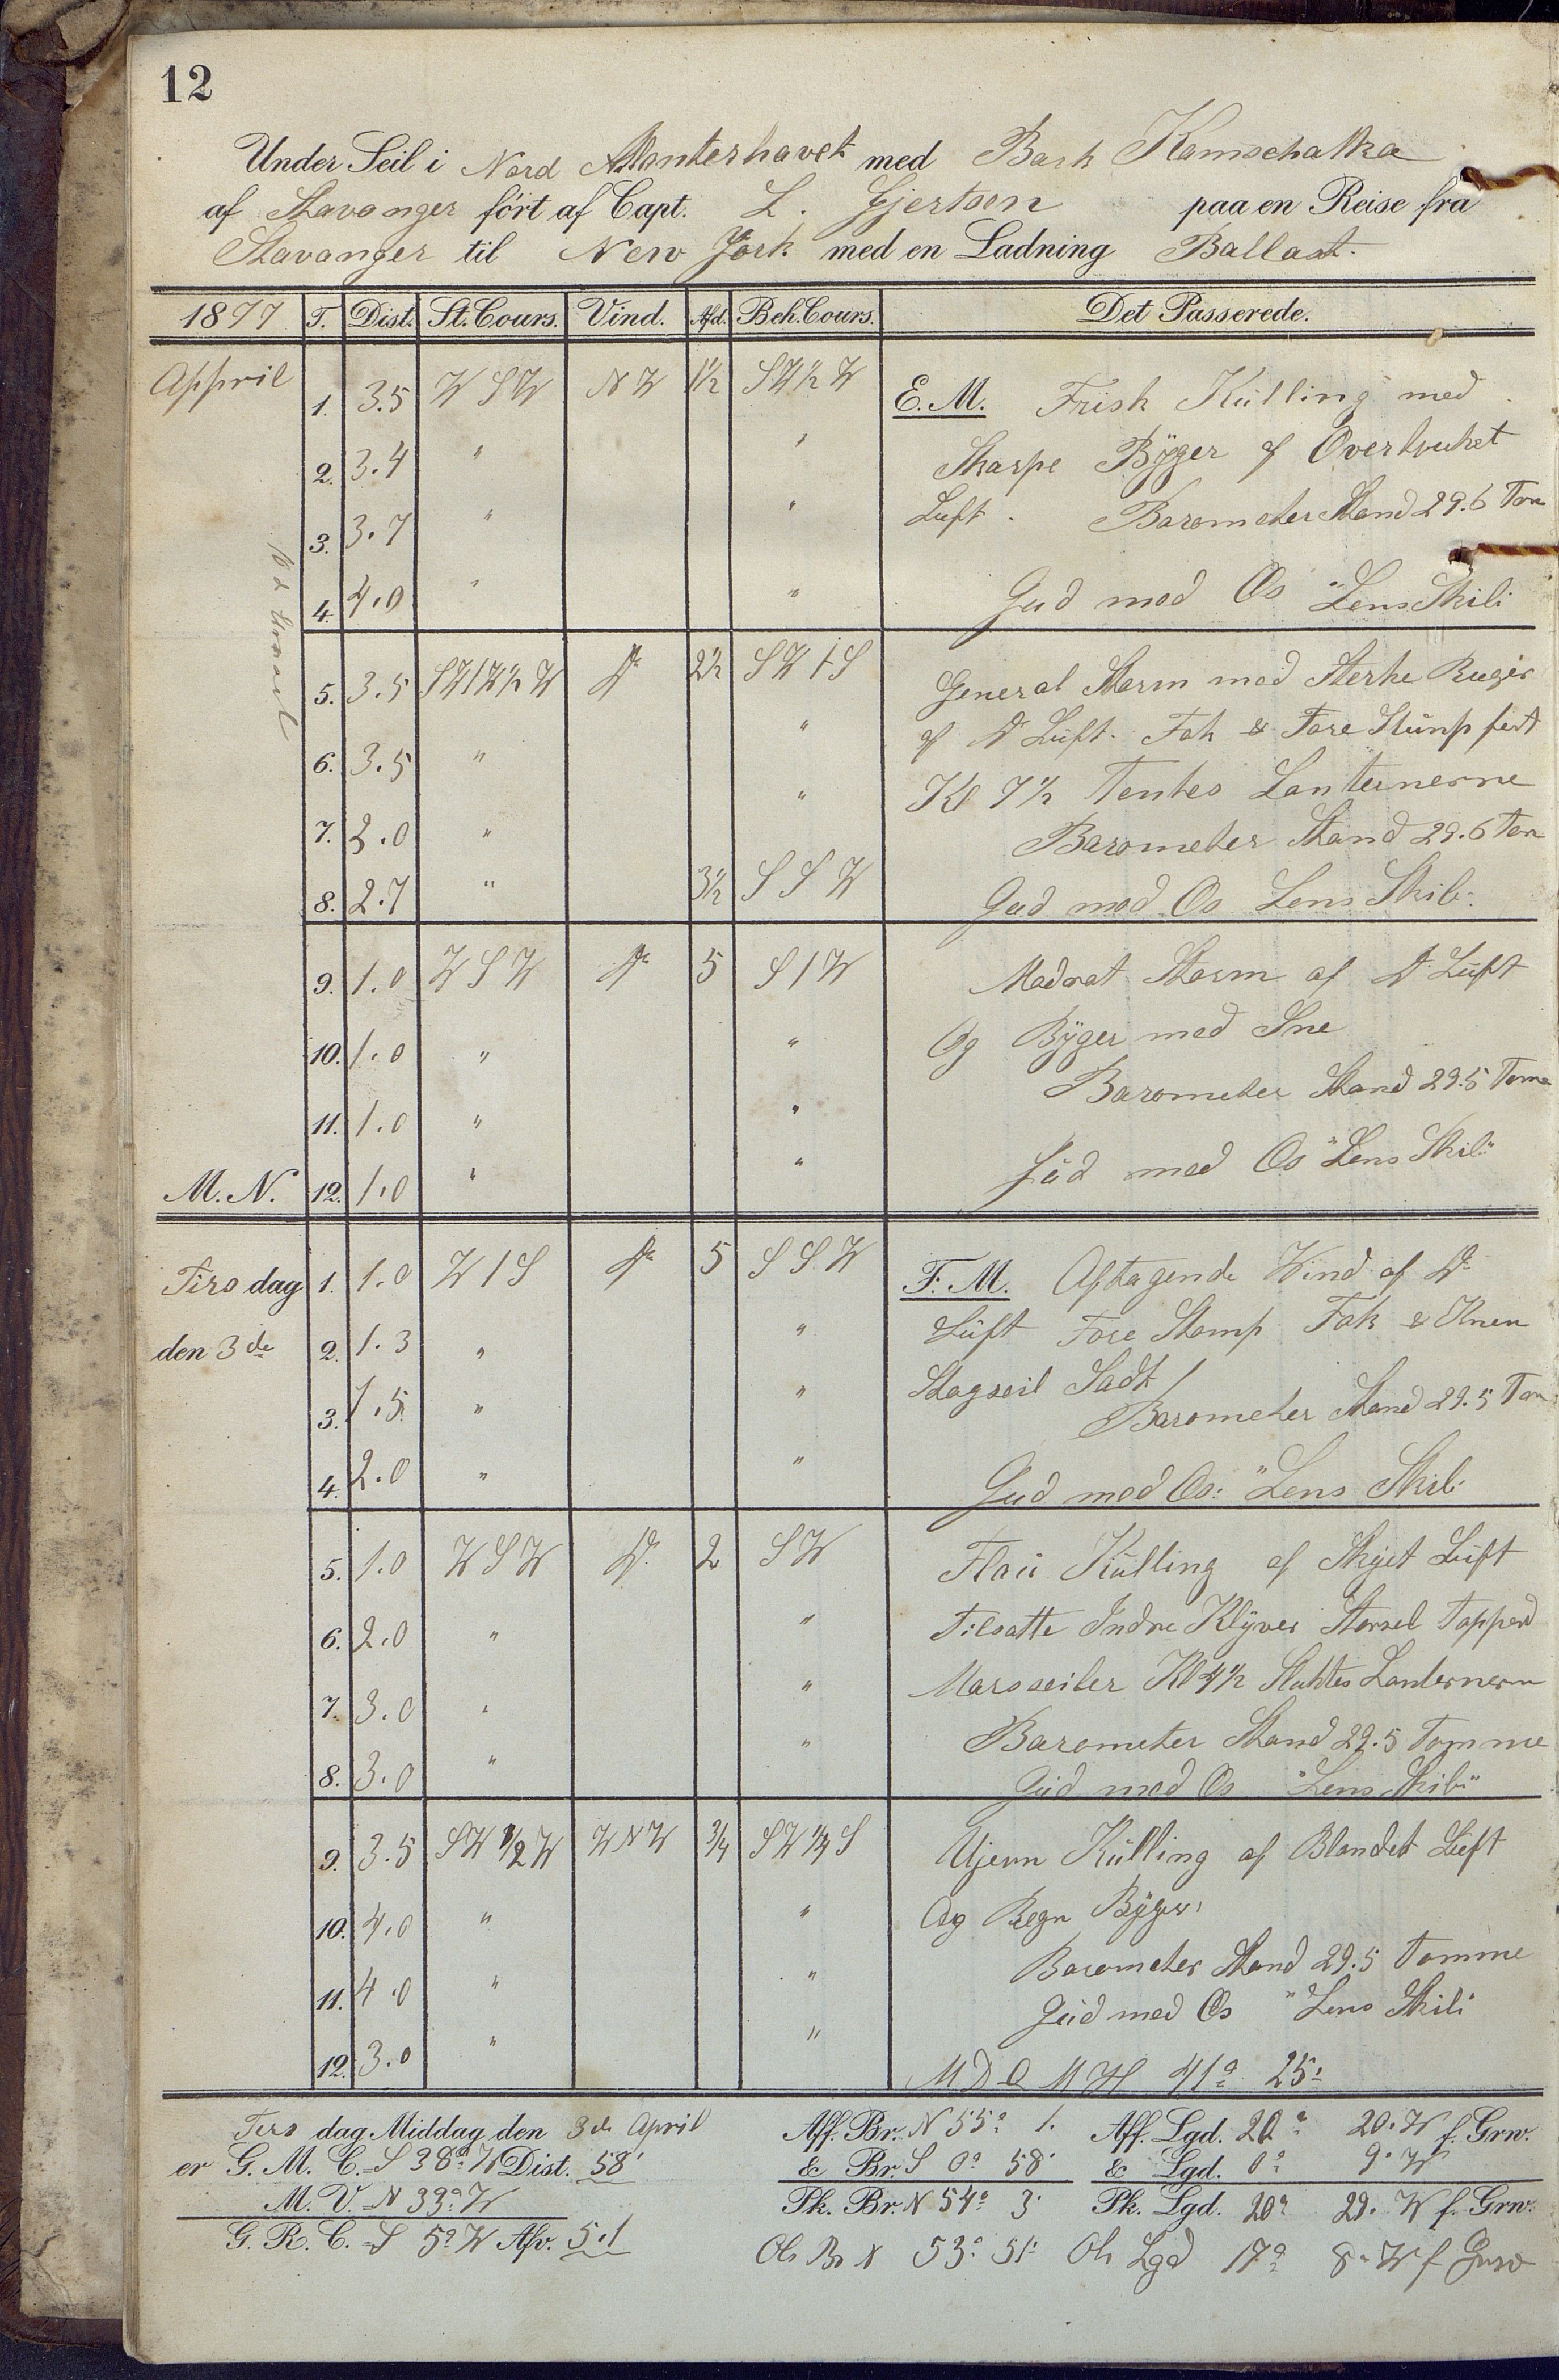 12
Under Seil i Nord Atlanterhavet med Bark Kamschatka
af Stavanger ført af Capt. L. Gjertsen paa en Reise fra
Stavanger til New York med en Ladning Ballast.
1877 T. Dist. St. Cours. Vind. Afd. Beh. Cours. Det Passerede.
April 1. 3.5 W S W N W 1½ S W ½ W E. M. Frisk Kulling med
2. 3.4 " " Skarpe Byger af Overtrukket
3. 3.7 " " Luft. Barometer Stand 29.6 Tom
4. 4.0 " " Gud med Os "Lens Skib"
5. 3.5 D° 2½ S W / S General Storm med Sterke Buger
6. 3.5 " " af D° Luft. Fok & Fore Stump fast
7. 2.0 " " Kl 7½ Tentes Lanternerne
Barometer Stand 29.6 Tom
8. 2.7 " 3½ S S W Gud med Os Lens Skib.
9. 1.0 W S W D° 5 S / W Madrat Storm af D° Luft
10. 1.0 " " Og Byger med Sne
Barometer Stand 29.5 Tome
11. 1.0 " "
M. N. 12. 1.0 " " Gud med Os "Lens Skib"
Tirs dag 1. 1.0 W / S D° 5 S S W F. M. Aftagende Wind af D°
den 3de 2. 1.3 " " Luft Fore Stomp Fok &
3. 1.5 " " Stagseil Sadt
Barometer Stand 29.5 Tom
4. 2.0 " " Gud med Os: "Lens Skib
5. 1.0 W S W D° 2 S W Flau Kulling af Skyet Luft
6. 2.0 " " Tilsatte Indre Klyver Storsel
7. 3.0 " " Marsseiler Kl 4½ Lanternern
Barometer Stand 29.5 Tomme
8. 3.0 " " Gud med Os "Lens Skib"
9. 3.5 S W ½ W W N W ¾ S W ¼ S Ujevn Kulling af Blandet Luft
10. 4.0 " " Og Regn Byger.
Barometer Stand 29.5 Tomme
11. 4.0 " " Gud med Os "Lens Skib"
12. 3.0 " " M D O M H 41° 25'
Tirs dag Middag den 3de April Aff. Br. N 55° 1' Aff. Lgd. 20° 20' W f. Grw.
er G. M. C. = S 38° W Dist. 58' & Br. S 0° 58' & Lgd. 0° 9' W
M. V. = N 33° W Pk. Br. N 54° 3' Pk. Lgd. 20° 29' W f. Grw.
G. R. C. = S 5° W Afv. 5.1 Ob Br N 53° 51' Ob Lgd 17° 8' W f Grw